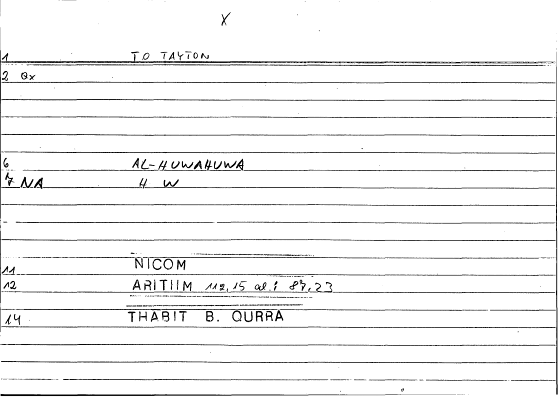 X
1 TO TAYTON
2 Qx
6 AL-HUWAHUWA
7 NA H W
11 NICOM
12 ARITIIM 112,15 al: 87,23
14 THABIT B. QURRA